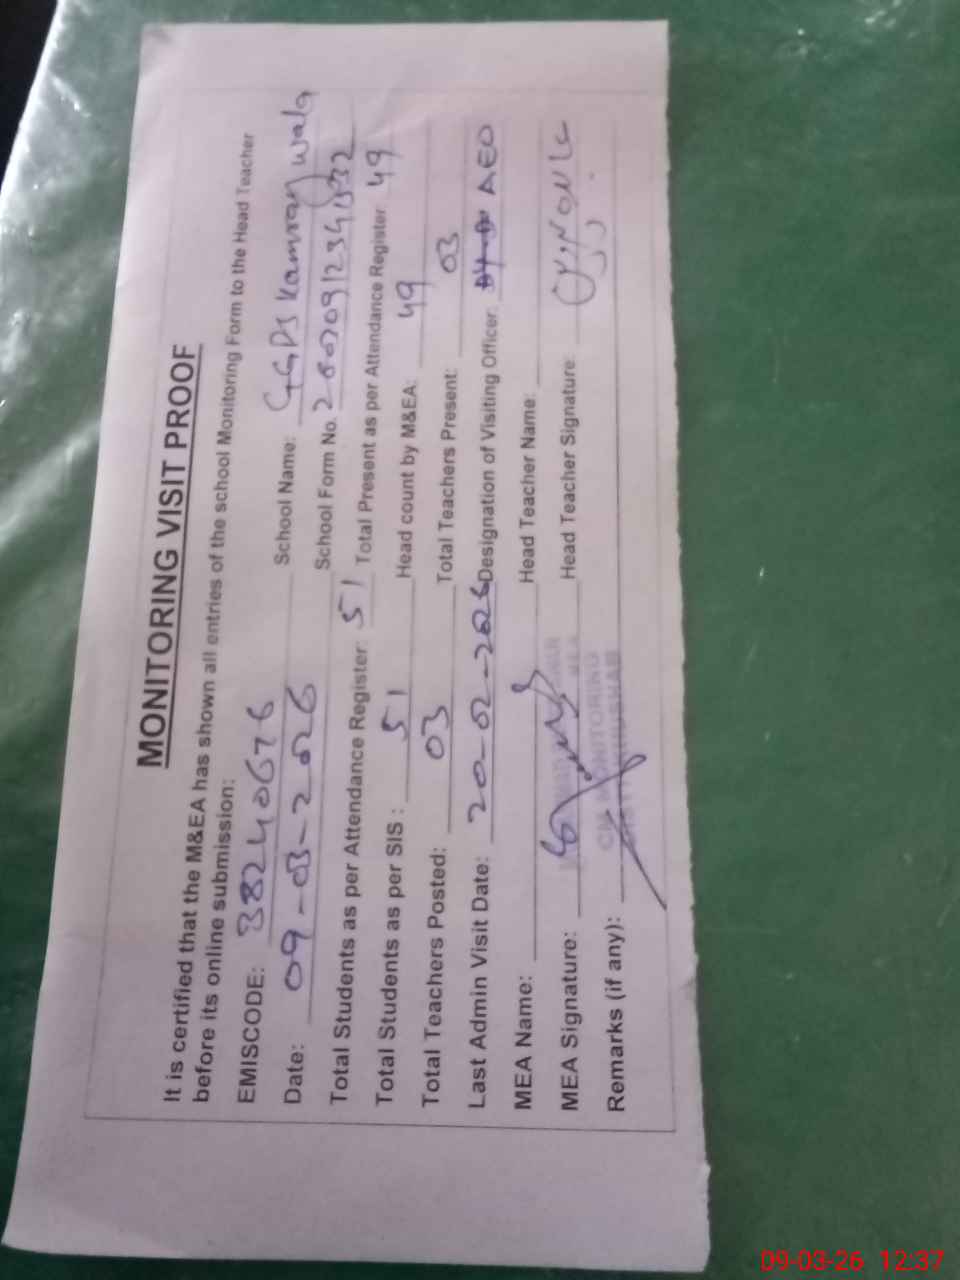 MONITORING VISIT PROOF
It is certified that the M&EA has shown all entries of the school Monitoring Form to the Head Teacher
before its online submission:
EMISCODE: 38240676 School Name: GGPS Kamray wala
Date: 09-03-2026 School Form No.
Total Students as per Attendance Register: 51 Total Present as per Attendance Register 49
Total Students as per SIS : 51 Head count by M&EA: 49
Total Teachers Posted: 03 Total Teachers Present: 03
Last Admin Visit Date: 20-02-2026 Designation of Visiting Officer: AEO
MEA Name: Head Teacher Name:
MEA Signature: Head Teacher Signature
Remarks (if any):
MONITORING
09-03-26 12:37